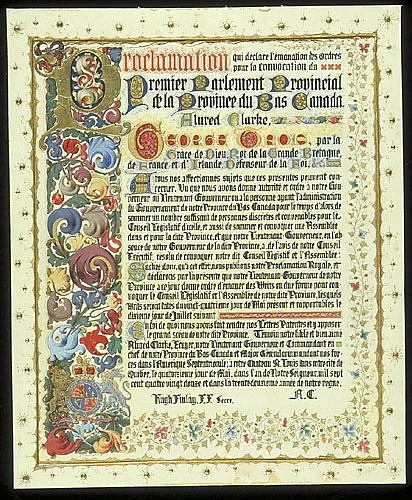 Proclamation qui déclare l'émanation des Ordres
pour la convocation du
Premier Parlement Provincial
de la Province du Bas Canada.
Alured Clarke,
George Trois, par la
Grâce de Dieu, Roi de la Grande Bretagne,
de France et d'Irlande, Défenseur de la Foi,
A tous nos affectionnés sujets que ces présentes peuvent con-
cerner. Vu que nous avons donné autorité et ordre à notre Gou-
verneur ou Lieutenant Gouverneur ou à la personne ayant l'administration
du Gouvernement de notre Province du Bas Canada pour le temps d'alors de
sommer un nombre suffisant de personnes discrètes et convenables pour le
Conseil Législatif d'icelle, et aussi de sommer et convoquer une Assemblée
dans et pour la dite Province, et que notre Lieutenant Gouverneur, en l'ab-
sence de notre Gouverneur de la dite Province, a de l'avis de notre Conseil
Exécutif, résolu de convoquer notre dit Conseil Législatif et l'Assemblée:
Sachez donc, qu'à cet effet, nous publions notre Proclamation Royale, et
déclarons par la présente que notre Lieutenant Gouverneur de notre
Province a ce jour donné ordre d'émaner des Writs en due forme pour con-
voquer le Conseil Législatif et l'Assemblée de notre dite Province, lesquels
Writs seront datés du vingt-quatrième jour de Mai présent et rapportables le
dixième jour de Juillet suivant
En foi de quoi nous avons fait rendre nos Lettres Patentes et y apposer
le grand sceau de notre dite Province. Témoin notre fidèle et bien aimé
Alured Clarke, Ecuyer, notre Lieutenant Gouverneur et Commandant en
chef de notre Province du Bas Canada et Major Général commandant nos for-
ces dans l'Amérique Septentrionale; à notre Chateau St. Louis dans notre cité de
Québec, le quatorzième jour de Mai, dans l'an de Notre Seigneur, mil sept
cent quatre vingt douze et dans la trente-deuxième année de notre règne.
Hugh Finlay,
A.C.